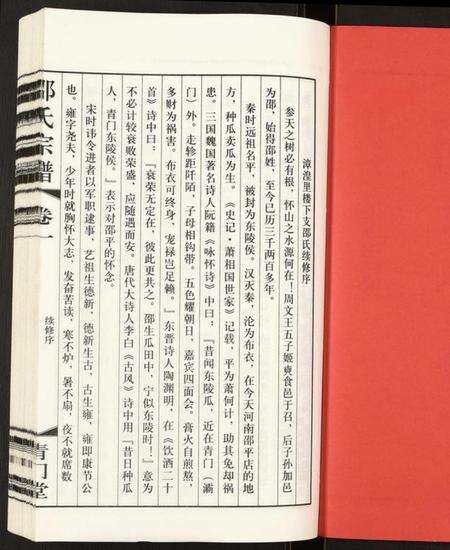 漳湟里楼下支邵氏续修序
参天之树必有根，怀山之水源何在！周文王五子姬奭食邑于召，后子孙加邑
为邵，始得邵姓，至今已历三千两百多年。
秦时远祖名平，被封为东陵侯。汉灭秦，沦为布衣，在今天河南邵平店的地
方，种瓜卖瓜为生。《史记·萧相国世家》记载，平为萧何计，助其免却祸
患。三国魏国著名诗人阮籍《咏怀诗》中曰：『昔闻东陵瓜，近在青门（灞
门）外。走轸距阡陌，子母相钩带。五色耀朝日，嘉宾四面会。膏火自煎熬，
多财为祸害。布衣可终身，宠禄岂足赖。』东晋诗人陶渊明，在《饮酒二十
首》诗中曰：『衰荣无定在，彼此更共之。邵生瓜田中，宁似东陵时！』意为
不必计较衰败荣盛，应随遇而安。唐代大诗人李白《古风》诗中用『昔日种瓜
人，青门东陵侯。』表示对邵平的怀念。
宋时讳令进者以军职逮事，艺祖生德新，德新生古，古生雍，雍即康节公
也。雍字尧夫，少年时就胸怀大志，发奋苦读，寒不炉，暑不扇，夜不就席数
邵氏宗谱
卷一
续修序
青门堂